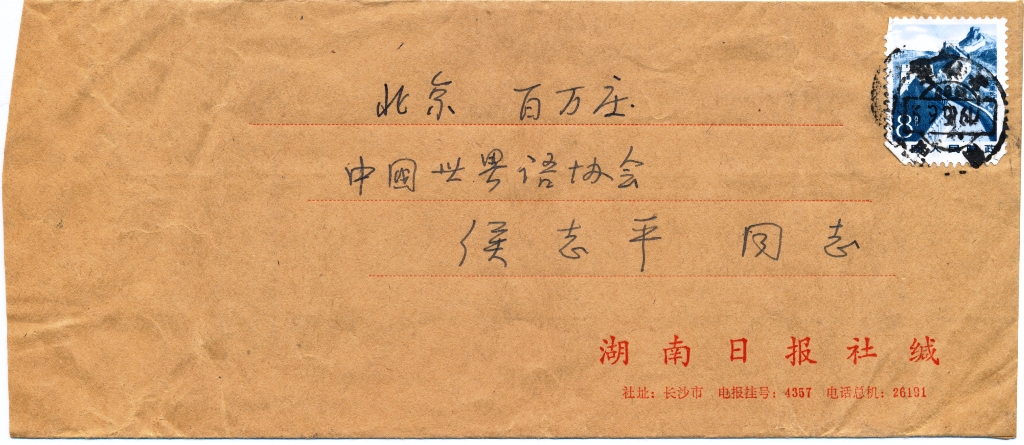 北京 百万庄
中國世界语协会
侯志平 同志
8
湖南日报社缄
社址：长沙市 电报挂号：4357 电话总机：26191